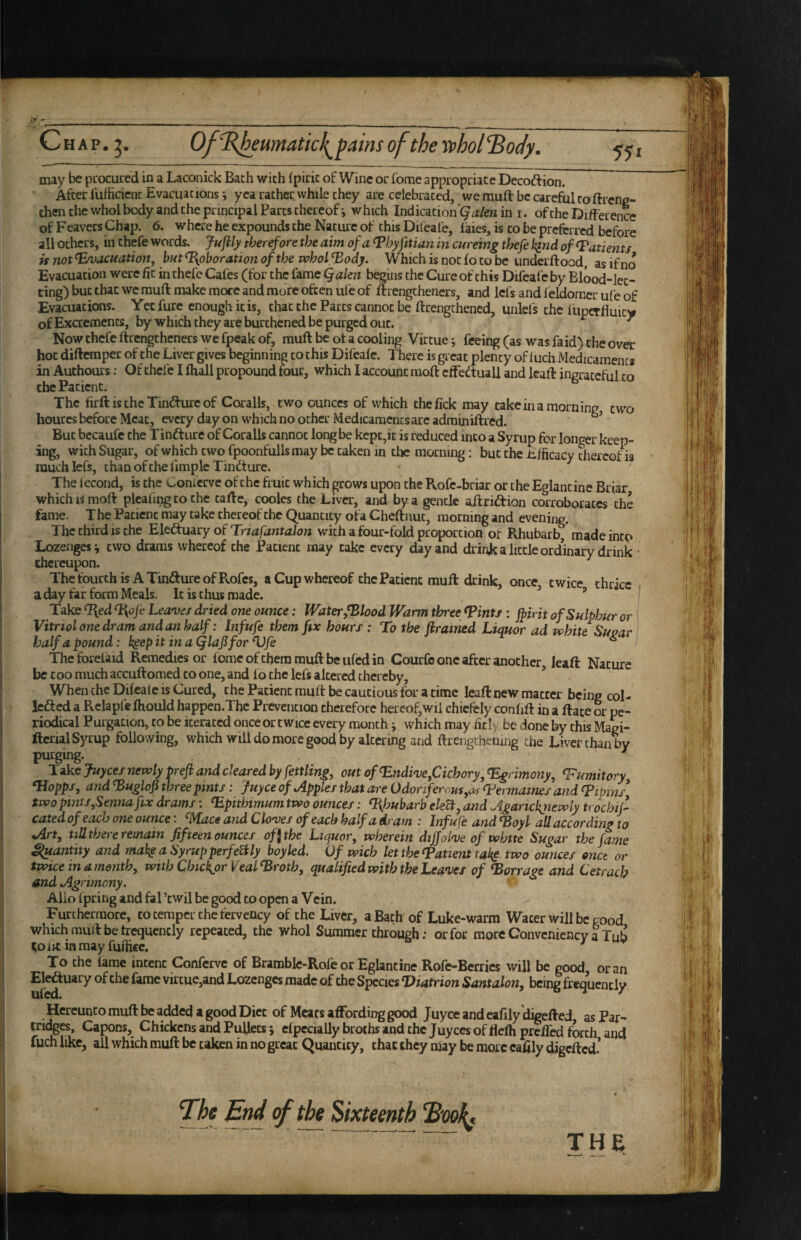 CHAP. 3. Of Rheumatick pains of the whol Body. 551
may be procured in a Laconick Bath with spirit of Wine or some appropriate Decoction.
After sufficient Evacuations; yea rather while they are celebrated, we must be careful to streng-
then the whol body and the principal Parts thereof; which Indication Galen in 1. of the Difference
of Feavers Chap. 6. where he expounds the Nature of this Disease, saies, is to be preferred before
all others, in these words. Justly therefore the aim of a Physitian in cureing these kind of Patients
is not Evacuation, but Roboration of the whol Body. Which is not so to be understood, as if no
Evacuation were fit in these Cases (for the same Galen begins the Cure of this Disease by Blood-let-
ting) but that we must make more and more often use of strengtheners, and less and seldomer use of
Evacuations. Yet sure enough it is, that the Parts cannot be strengthened, unless the superfluity
of Excrements, by which they are burthened be purged out.
Now these strengtheners we speak of, must be of a cooling Virtue; seeing (as was said) the over
hot distemper of the Liver gives beginning to this Disease. There is great plenty of such Medicaments
in Authours: Of these I shall propound four, which I account most effectuall and least ingrateful to
the Patient.
The first is the Tincture of Coralls, two ounces of which the sick may take in a morning, two
houres before Meat, every day on which no other Medicaments are administred.
But because the Tincture of Coralls cannot long be kept, it is reduced into a Syrup for longer keep-
ing, with Sugar, of which two spoonfulls may be taken in the morning: but the Efficacy thereof is
much less, than of the simple Tincture.
The second, is the Conserve of the fruit which grows upon the Rose-briar or the Eglantine Briar,
which is most pleasing to the taste, cooles the Liver, and by a gentle astriction corroborates the
same. The Patient may take thereof the Quantity of a Chestnut, morning and evening.
The third is the Electuary of Triasantalon with a four-fold proportion of Rhubarb, made into
Lozenges; two drams whereof the Patient may take every day and drink a little ordinary drink
thereupon.
The fourth is A Tincture of Roses, a Cup whereof the Patient must drink, once, twice, thrice
a day far form Meals. It is thus made.
Take Red Rose Leaves dried one ounce: Water, Blood Warm three Pints: spirit of Sulphur or
Vitriol one dram and an half: Infuse them six hours: To the strained Liquor ad white Sugar
half a pound: keep it in a Glass for Use
The foresaid Remedies or some of them must be used in Course one after another, least Nature
be too much accustomed to one, and so the less altered thereby,
When the Disease is Cured, the Patient must be cautious for a time least new matter being col-
lected a Relapse should happen. The Prevention therefore hereof, wil chiefely consist in a state or pe-
riodical Purgation, to be iterated once or twice every month; which may fitly be done by this Magi-
sterial Syrup following, which will do more good by altering and strengthening the Liver than by
purging.
Take Juyces newly prest and cleared by settling, out of Endive, Cichory, Egrimony, Fumitory,
Hopps, and Bugloss three pints: Juyce of Apples that are Odoriferous, as Permaines and Pipins,
two pints, Senna six drams: Epithimum two ounces: Rhubarb elect, and Agarick newly trochis-
cated of each one ounce: Mace and Cloves of each half a dram: Infuse and Boyl all according to
Art, till there remain fifteen ounces of the Liquor, wherein dissolve of white Sugar the same
Quantity and make a Syrup perfectly boyled. Of wich let the Patient take two ounces once or
twice in a month, with Chickor Veal Broth, qualified with the Leaves of Borrage and Cetrach
and Agrimony.
Also spring and fal 'twil be good to open a Vein.
Furthermore, to temper the fervency of the Liver, a Bath of Luke-warm Water will be good,
which must be frequently repeated, the whol Summer through: or for more Conveniency a Tub
to sit in may suffice.
To the same intent Conserve of Bramble-Rose or Eglantine Rose-Berries will be good, or an
Electuary of the same virtue, and Lozenges made of the Species Diatrion Santalon, being frequently
used.
Hereunto must be added a good Diet of Meats affording good Juyce and easily digested, as Par-
tridges, Capons, Chickens and Pullets; especially broths and the Juyces of flesh pressed forth, and
such like, all which must be taken in no great Quantity, that they may be more easily digested.
The End of the Sixteenth Book.
THE